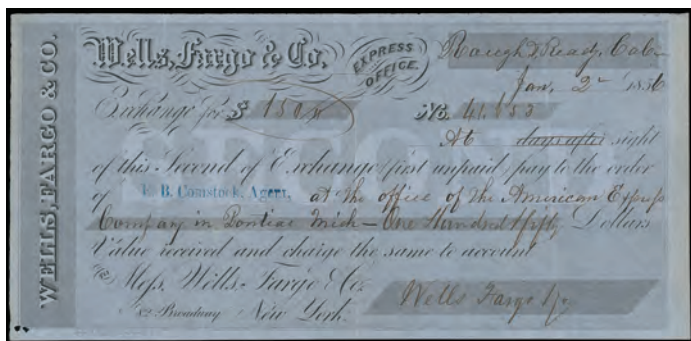 WELLS, FARGO & CO.
Wells, Fargo & Co. EXPRESS OFFICE.
Rough & Ready, Cal
Jan, 2 1856
Exchange for $ 150
No. 41,853
At days after sight
of this Second of Exchange (first unpaid) pay to the order
of E. B. Comstock, Agent, at the office of the American Express
Company in Pontiac Mich — One Hundred fifty Dollars
Value received and charge the same to account
To Mess. Wells, Fargo & Co.
82 Broadway New York.
Wells Fargo & Co
SECOND